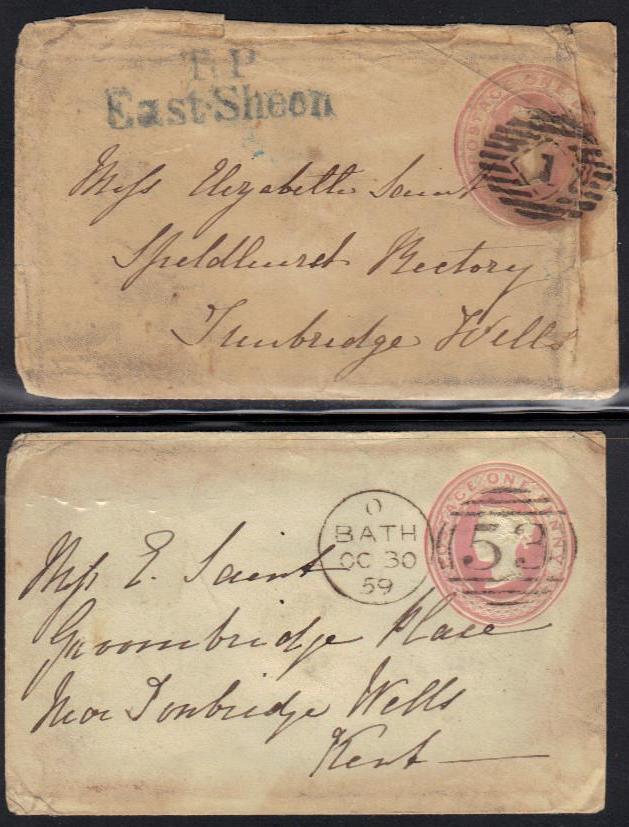 T.P
East-Sheen
POSTAGE ONE
1
Miss Elizabeth Saint
Speldhurst Rectory
Tunbridge Wells
O
BATH
OC 30
59
53
POSTAGE ONE PENNY
Miss E. Saint
Groombridge Place
Near Tonbridge Wells
Kent